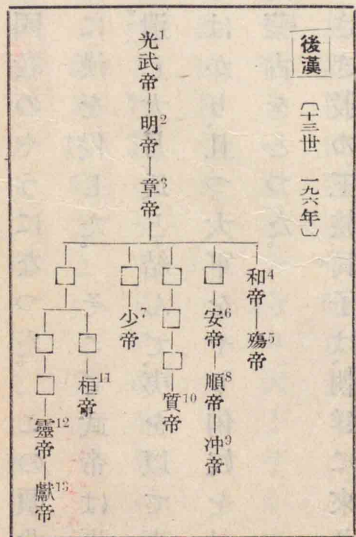 後漢〔十三世 一九六年〕
光武帝1―明帝2―章帝3
和帝4―殤帝5
□―安帝6―順帝8―冲帝9
□―□―□―質帝10
□―少帝7
□
□―桓帝11
□―□―靈帝12―獻帝13